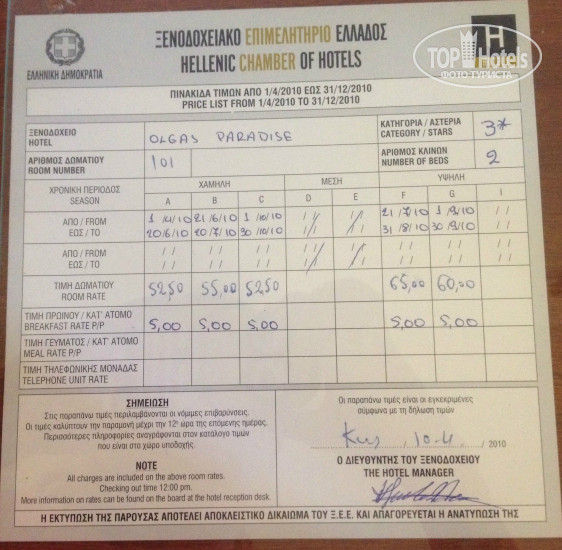 ΞΕΝΟΔΟΧΕΙΑΚΟ ΕΠΙΜΕΛΗΤΗΡΙΟ ΕΛΛΑΔΟΣ
HELLENIC CHAMBER OF HOTELS
ΕΛΛΗΝΙΚΗ ΔΗΜΟΚΡΑΤΙΑ
H
TOPHotels
ФОТО ТУРИСТА
ΠΙΝΑΚΙΔΑ ΤΙΜΩΝ ΑΠΟ 1/4/2010 ΕΩΣ 31/12/2010
PRICE LIST FROM 1/4/2010 TO 31/12/2010
ΞΕΝΟΔΟΧΕΙΟ
HOTEL
OLGAS PARADISE
ΚΑΤΗΓΟΡΙΑ / ΑΣΤΕΡΙΑ
CATEGORY / STARS
3*
ΑΡΙΘΜΟΣ ΔΩΜΑΤΙΟΥ
ROOM NUMBER
101
ΑΡΙΘΜΟΣ ΚΛΙΝΩΝ
NUMBER OF BEDS
2
ΧΡΟΝΙΚΗ ΠΕΡΙΟΔΟΣ
SEASON
ΧΑΜΗΛΗ ΜΕΣΗ ΥΨΗΛΗ
A B C D E F G I
ΑΠΟ / FROM 1/4/10 21/6/10 1/10/10 / / / / 21/7/10 1/9/10 / /
ΕΩΣ / TO 20/6/10 20/7/10 30/10/10 / / / / 31/8/10 30/9/10 / /
ΑΠΟ / FROM / / / / / / / / / / / / / / / /
ΕΩΣ / TO / / / / / / / / / / / / / / / /
ΤΙΜΗ ΔΩΜΑΤΙΟΥ
ROOM RATE
52,50 55,00 52,50 65,00 60,00
ΤΙΜΗ ΠΡΩΙΝΟΥ / ΚΑΤ' ΑΤΟΜΟ
BREAKFAST RATE P/P
5,00 5,00 5,00 5,00 5,00
ΤΙΜΗ ΓΕΥΜΑΤΟΣ / ΚΑΤ' ΑΤΟΜΟ
MEAL RATE P/P
ΤΙΜΗ ΤΗΛΕΦΩΝΙΚΗΣ ΜΟΝΑΔΑΣ
TELEPHONE UNIT RATE
ΣΗΜΕΙΩΣΗ
Στις παραπάνω τιμές περιλαμβάνονται οι νόμιμες επιβαρύνσεις.
Οι τιμές καλύπτουν την παραμονή μέχρι την 12η ώρα της επόμενης ημέρας.
Περισσότερες πληροφορίες αναγράφονται στον κατάλογο τιμών
που είναι στο χώρο υποδοχής.
NOTE
All charges are included on the above room rates.
Checking out time 12:00 pm.
More information on rates can be found on the board at the hotel reception desk.
Οι παραπάνω τιμές είναι οι εγκεκριμένες
σύμφωνα με τη δήλωση τιμών
Κως, 10-4 / 2010
Ο ΔΙΕΥΘΥΝΤΗΣ ΤΟΥ ΞΕΝΟΔΟΧΕΙΟΥ
THE HOTEL MANAGER
Η ΕΚΤΥΠΩΣΗ ΤΗΣ ΠΑΡΟΥΣΑΣ ΑΠΟΤΕΛΕΙ ΑΠΟΚΛΕΙΣΤΙΚΟ ΔΙΚΑΙΩΜΑ ΤΟΥ Ξ.Ε.Ε. ΚΑΙ ΑΠΑΓΟΡΕΥΕΤΑΙ Η ΑΝΑΤΥΠΩΣΗ ΤΗΣ